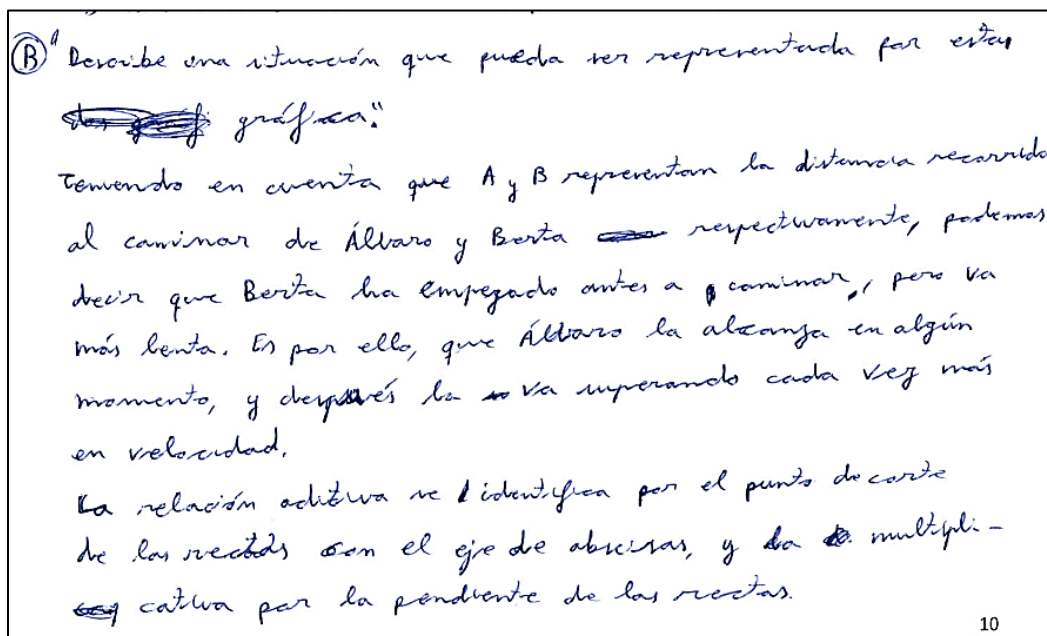 Ⓑ "Describe una situación que pueda ser representada por estas
gráfica."
Teniendo en cuenta que A y B representan la distancia recorrida
al caminar de Álvaro y Berta respectivamente, podemos
decir que Berta ha empezado antes a caminar, pero va
más lenta. Es por ello, que Álvaro la alcanza en algún
momento, y después la va superando cada vez más
en velocidad.
La relación aditiva se identifica por el punto de corte
de las rectas con el eje de abscisas, y la multipli-
cativa por la pendiente de las rectas.
10